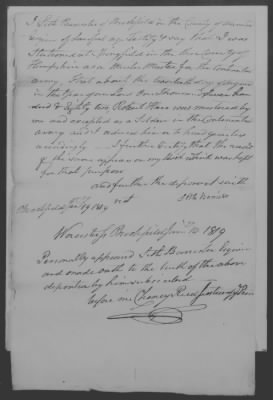 I Seth Banister of Brookfield in the County of Worcester
Esquire of lawful age testify & say that I was
Stationed at Springfield in the then County of
Hampshire as a Muster Master for the Continental
army That about the day of August
in the year of our Lord One Thousand Seven hun
dred & Eighty two Robert was mustered by
me and accepted as a Soldier in the Continental
army and I ordered him to headquarters
accordingly I further Certify that the
of the same appears on my which was kept
for that purpose
and further the deponent saith
Brookfield 19 1819 not
Worcester ss Brookfield 1819
Personally appeared Seth Banister Esquire
and made oath to the truth of the above
deposition by him subscribed
before me Cheney Reed Justice of Peace